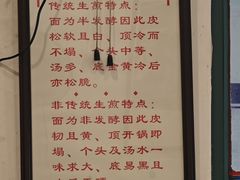 传统生煎特点：
面为半发酵因此皮
松软且白、顶冷而
不塌、头中等、
汤多、底金黄冷后
亦松脆。
非传统生煎特点：
面为非发酵因此皮
韧且黄、顶开锅即
塌、个头及汤水一
味求大、底易黑且